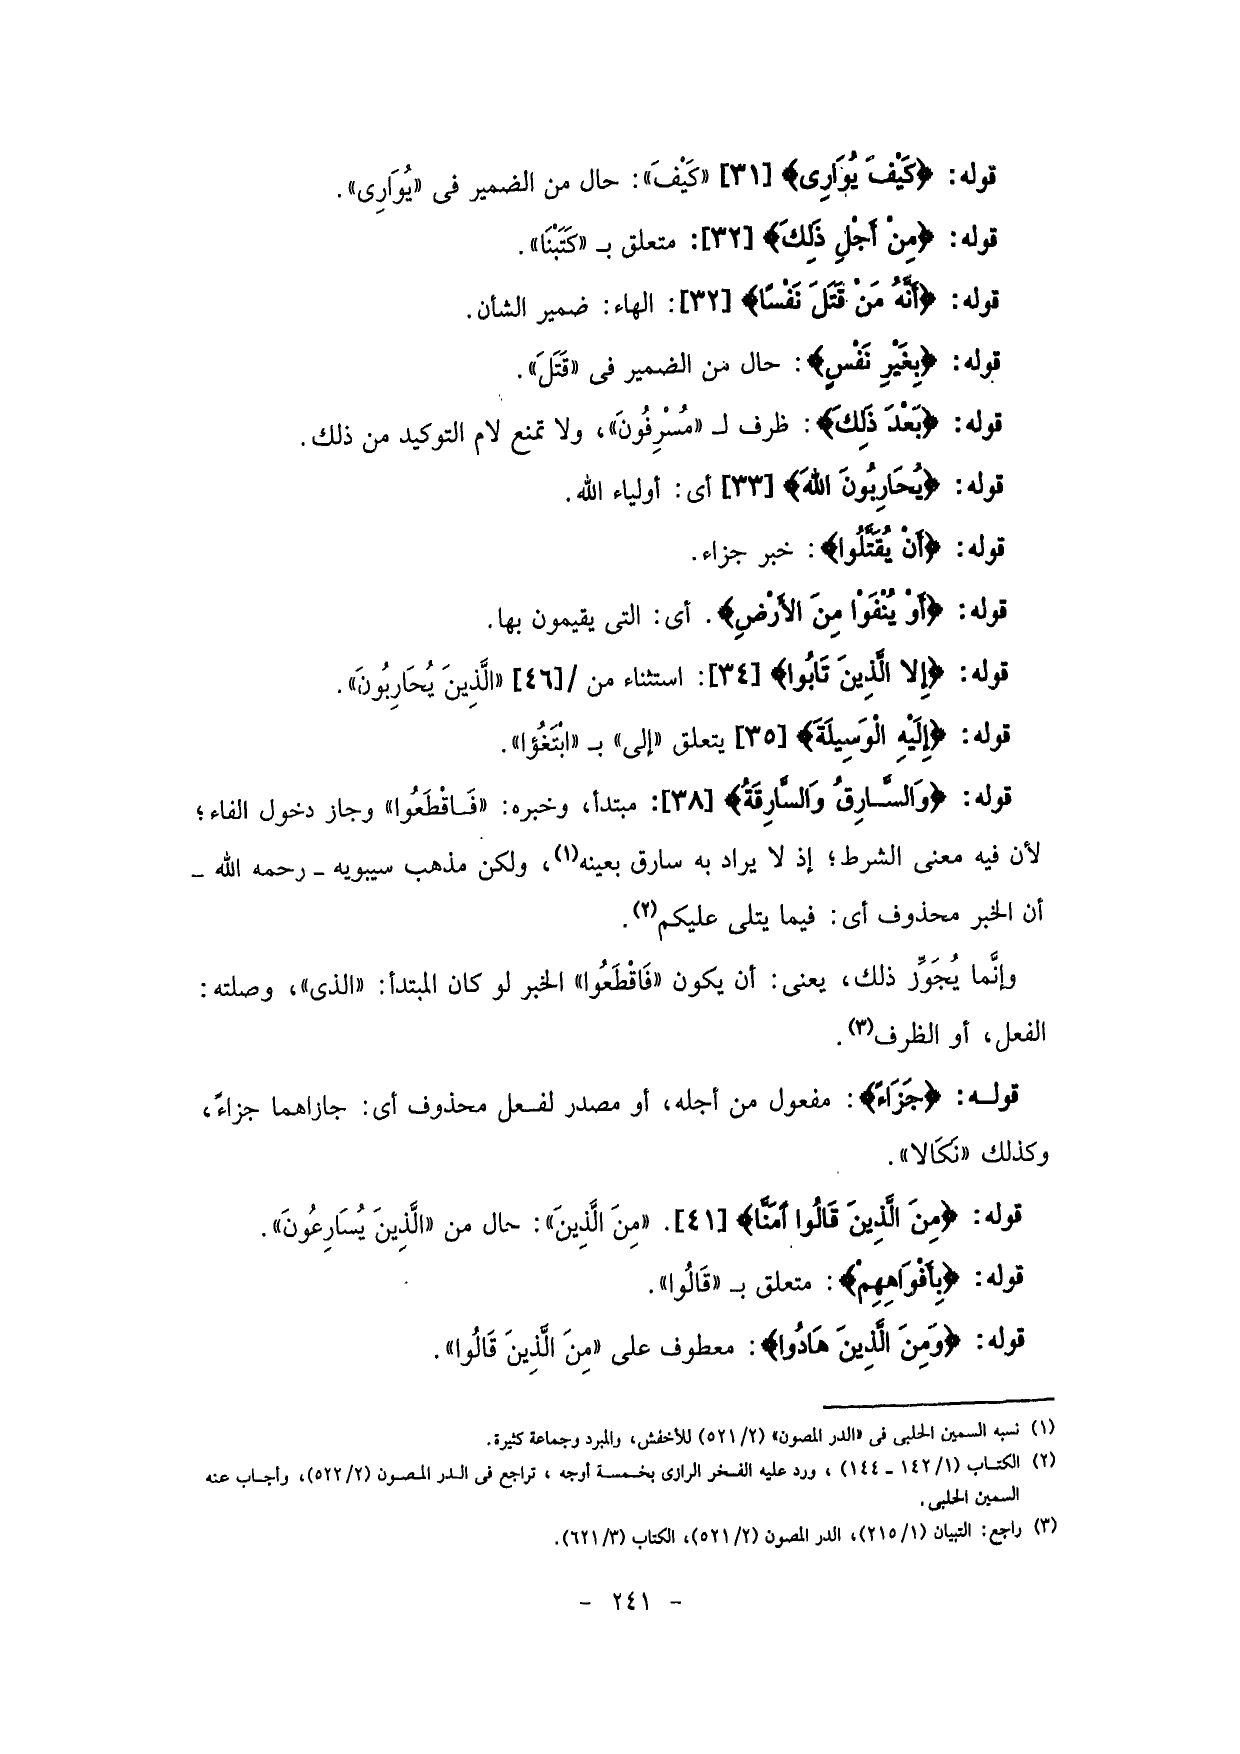 قوله: ﴿كَيْفَ يُوَارِى﴾ [٣١] «كَيْفَ»: حال من الضمير فى «يُوَارِى».
قوله: ﴿مِنْ أَجْلِ ذَلِكَ﴾ [٣٢]: متعلق بـ «كَتَبْنَا».
قوله: ﴿أَنَّهُ مَنْ قَتَلَ نَفْسًا﴾ [٣٢]: الهاء: ضمير الشأن.
قوله: ﴿بِغَيْرِ نَفْسٍ﴾: حال من الضمير فى «قَتَلَ».
قوله: ﴿بَعْدَ ذَلِكَ﴾: ظرف لـ «مُسْرِفُونَ»، ولا تمنع لام التوكيد من ذلك.
قوله: ﴿يُحَارِبُونَ اللهَ﴾ [٣٣] أى: أولياء الله.
قوله: ﴿أَنْ يُقَتَّلُوا﴾: خبر جزاء.
قوله: ﴿أَوْ يُنْفَوْا مِنَ الأَرْضِ﴾. أى: التى يقيمون بها.
قوله: ﴿إِلا الَّذِينَ تَابُوا﴾ [٣٤]: استثناء من /[٤٦] «الَّذِينَ يُحَارِبُونَ».
قوله: ﴿إِلَيْهِ الْوَسِيلَةَ﴾ [٣٥] يتعلق «إلى» بـ «ابْتَغُوا».
قوله: ﴿وَالسَّارِقُ وَالسَّارِقَةُ﴾ [٣٨]: مبتدأ، وخبره: «فَاقْطَعُوا» وجاز دخول الفاء؛
لأن فيه معنى الشرط؛ إذ لا يراد به سارق بعينه(١)، ولكن مذهب سيبويه ـ رحمه الله ـ
أن الخبر محذوف أى: فيما يتلى عليكم(٢).
وإنَّما يُجَوِّز ذلك، يعنى: أن يكون «فَاقْطَعُوا» الخبر لو كان المبتدأ: «الذى»، وصلته:
الفعل، أو الظرف(٣).
قولـه: ﴿جَزَاءً﴾: مفعول من أجله، أو مصدر لفعل محذوف أى: جازاهما جزاءً،
وكذلك «نَكَالا».
قوله: ﴿مِنَ الَّذِينَ قَالُوا آمَنَّا﴾ [٤١]. «مِنَ الَّذِينَ»: حال من «الَّذِينَ يُسَارِعُونَ».
قوله: ﴿بِأَفْوَاهِهِمْ﴾: متعلق بـ «قَالُوا».
قوله: ﴿وَمِنَ الَّذِينَ هَادُوا﴾: معطوف على «مِنَ الَّذِينَ قَالُوا».
(١) نسبه السمين الحلبى فى «الدر المصون» (٥٢١/٢) للأخفش، والمبرد وجماعة كثيرة.
(٢) الكتاب (١/ ١٤٢ ـ ١٤٤) ، ورد عليه الفخر الرازى بخمسة أوجه ، تراجع فى الدر المصون (٥٢٢/٢)، وأجاب عنه
السمين الحلبى.
(٣) راجع: التبيان (٢١٥/١)، الدر المصون (٥٢١/٢)، الكتاب (٦٢١/٣).
- ٢٤١ -